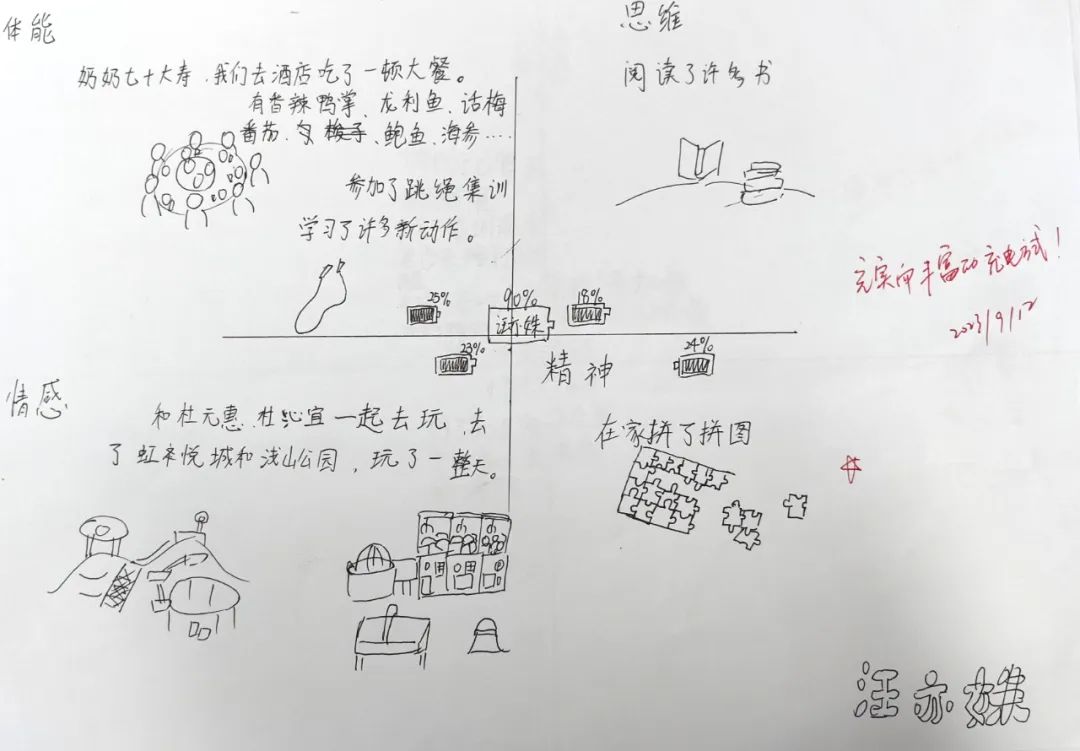 体能
奶奶七十大寿，我们去酒店吃了一顿大餐。
有香辣鸭掌、龙利鱼、话梅
番茄、鲍鱼、海参……
参加了跳绳集训
学习了许多新动作。
思维
阅读了许多书
25%
90%
18%
汪亦姝
23%
24%
精神
充实而丰富的充电方式！
2023/9/12
情感
和杜元惠、杜沁宜一起去玩，去
了虹来悦城和浅山公园，玩了一整天。
在家拼了拼图
汪亦姝